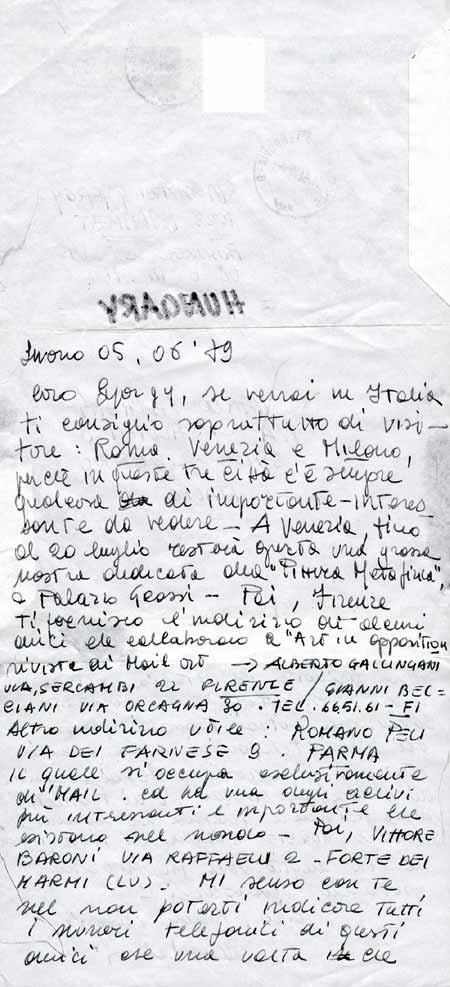 HUNGARY
05, 06 '79
Caro Gyorgy, se verrai in Italia
ti consiglio soprattutto di visi-
tare: Roma, Venezia e Milano,
perchè in queste tre città c'è sempre
qualcosa di importante-interes
sante da vedere - A Venezia, fino
al 20 luglio resterà aperta una grossa
mostra dedicata alla "Pittura Metafisica",
a Palazzo Grassi - Poi, Firenze
Ti fornisco l'indirizzo di alcuni
amici che collaborano a "Art in opposition
rivista di Mail art → ALBERTO GALLINGANI
VIA, SERCAMBI 22 FIRENZE / GIANNI BEC=
CIANI VIA ORCAGNA 30 . TEL. 66.51.61 - FI
Altro indirizzo utile : ROMANO PELI
VIA DEI FARNESE 9 . PARMA
IL quale si occupa esclusivamente
di "MAIL . ed ha una degli archivi
più interessanti e importanti che
esistono nel mondo - Poi, VITTORE
BARONI VIA RAFFAELLI 2 - FORTE DEI
MARMI (LU). MI scuso con te
nel non poterti indicare tutti
i numeri telefonici di questi
amici che una volta che